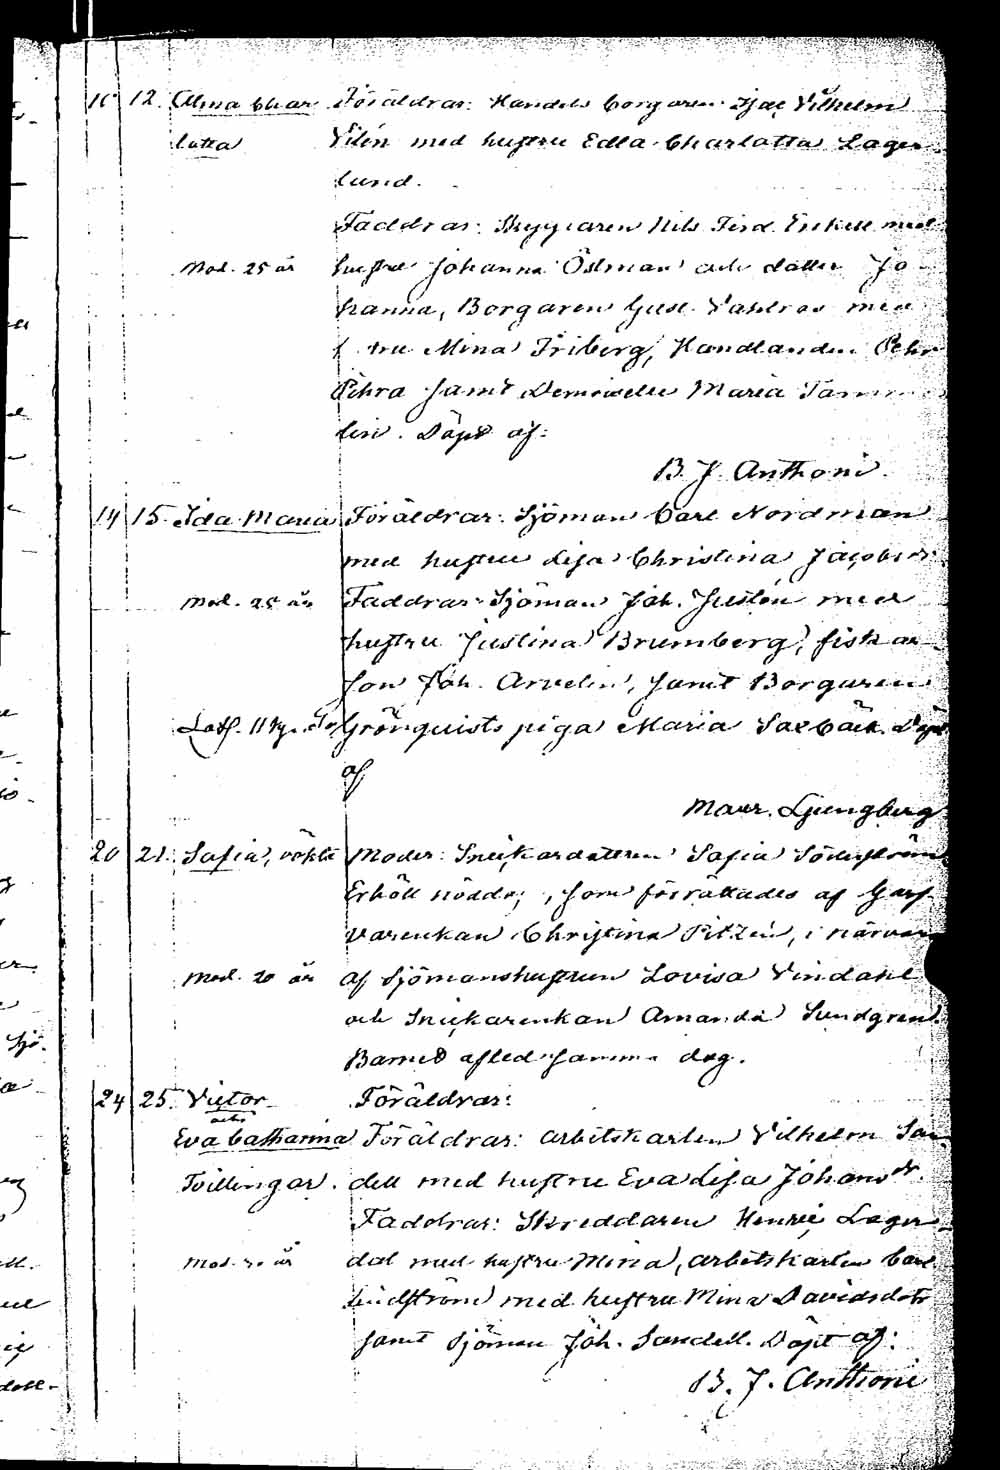 10 12. Alma Char- Föräldrar: Handels borgaren Isac Vilhelm
lotta Vilén med hustru Edla Charlotta Lager-
lund.
Faddrar: Nils Ferd. Enkell med
Mod. 25 år hustru Johanna Östman och dotter Jo-
hanna, Borgaren Gust. Vahlroos med
hustru Mina Friberg, Handlanden Pehr
Pihra samt Demoiselle Maria Tamme-
lin. Döpt af:
B. J. Anthoni.
14 15. Ida Maria Föräldrar: Sjöman Carl Nordman
med hustru Lisa Christina Jacobsdr.
Mod. 25 år Faddrar: Sjöman Joh. Justén med
hustru Justina Brumberg, fiskar
son Joh. Arvelin, samt Borgaren
Grönquists piga Maria Saxbäck. Döpt
af
Maur. Ljungberg
20 21. Safia, oäkta Moder: Snickaredottern Safia Söderström
Erhöll nöddop, som förrättades af Garf-
varenkan Christina Pitzén, i närvaro
Mod. 20 år af Sjömanshustrun Lovisa Vindahl
och Snickarenkan Amanda Sundgren.
Barnet afled samma dag.
24 25. Victor Föräldrar:
och
Eva Catharina Föräldrar: arbetskarlen Vilhelm San-
Tvillingar. dell med hustru Eva Lisa Johansdr.
Faddrar: Skreddaren Henric Lager-
Mod. år dal med hustru Mina, arbetskarlen Carl
Lindström med hustru Mina Davidsdotr
samt Sjöman Joh. Sandell. Döpt af:
B. J. Anthoni